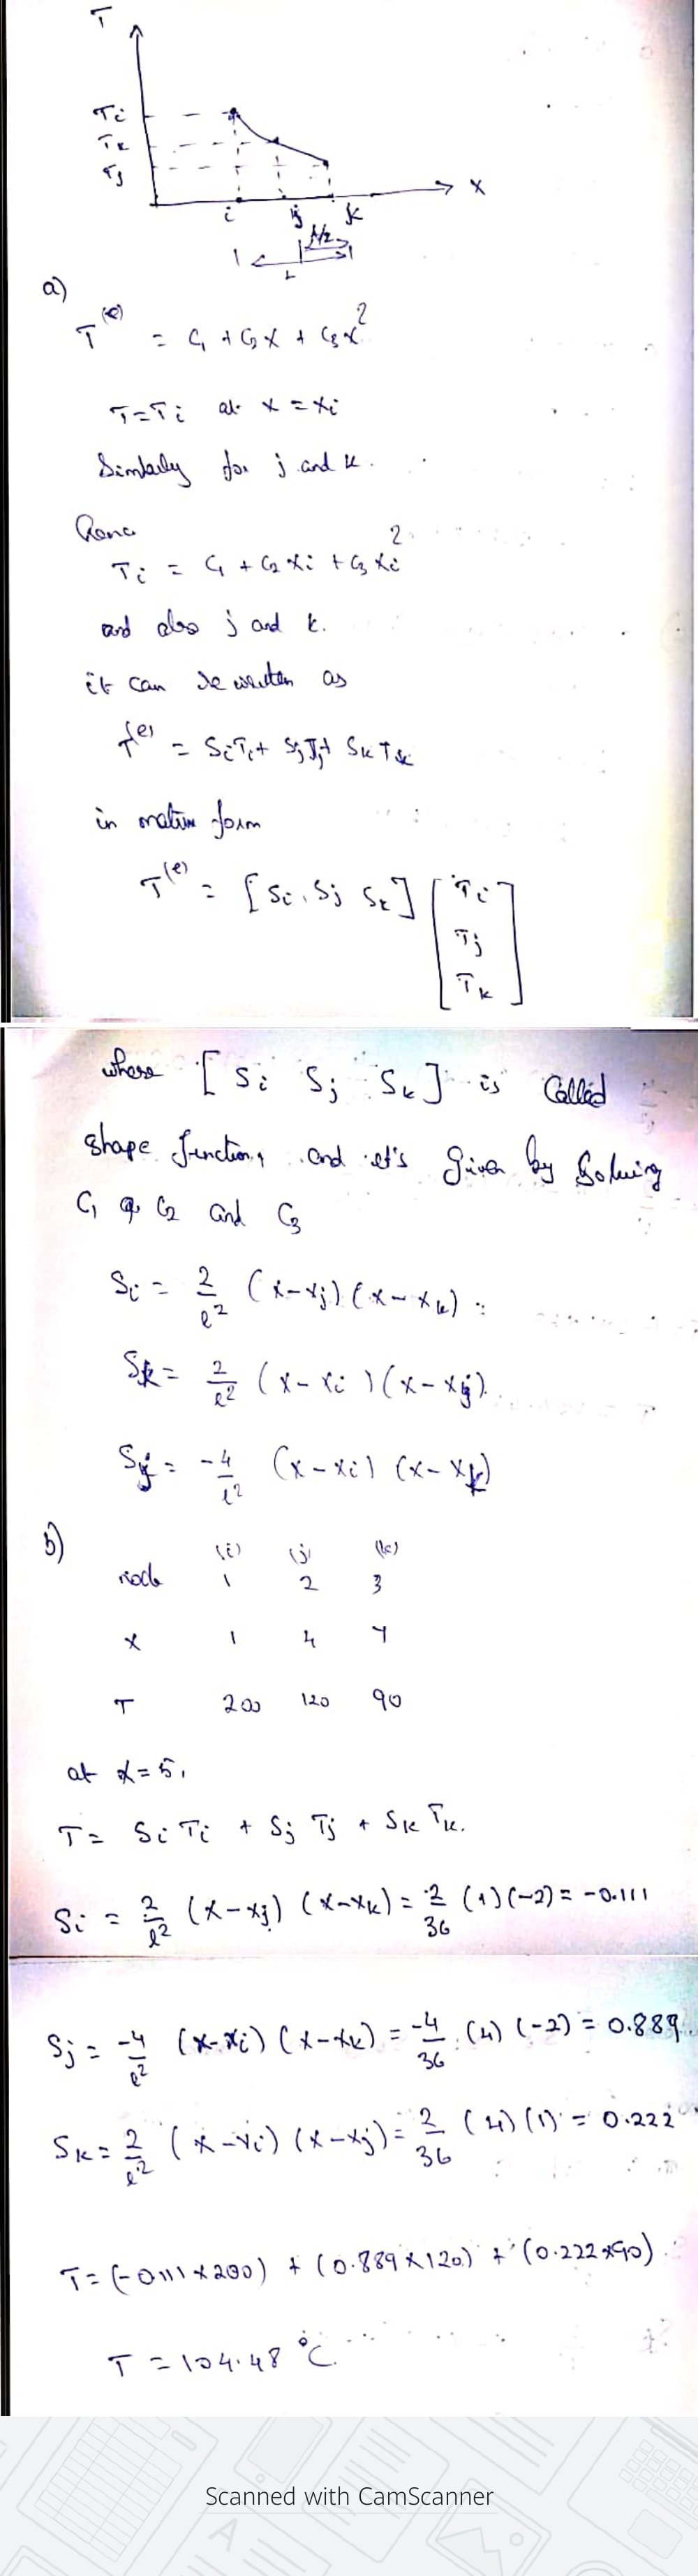 T
Ti
Tk
Tj
X
i j k
l/2
L
a)
T^(e) = C1 + C2x + C3x^2
T=Ti at x = xi
Similarly for j and k.
Hence
Ti = C1 + C2 xi + C3 xi^2
and also j and k.
it can be written as
T^(e) = SiTi + SjTj + SkTk
in matrix form
T^(e) = [Si Sj Sk] [Ti
Tj
Tk]
where [Si Sj Sk] is called
shape function, and it's given by solving
C1 C2 and C3
Si = 2/l^2 (x-xj) (x-xk)
Sk = 2/l^2 (x-xi) (x-xj)
Sj = -4/l^2 (x-xi) (x-xk)
b)
(i) (j) (k)
node 1 2 3
x 1 4 7
T 200 120 90
at x=5,
T = Si Ti + Sj Tj + Sk Tk.
Si = 2/l^2 (x-xj) (x-xk) = 2/36 (1)(-2) = -0.111
Sj = -4/l^2 (x-xi) (x-xk) = -4/36 (4) (-2) = 0.889
Sk = 2/l^2 (x-xi) (x-xj) = 2/36 (4) (1) = 0.222
T = (-0.111 x 200) + (0.889 x 120) + (0.222 x 90)
T = 104.48 °C
Scanned with CamScanner